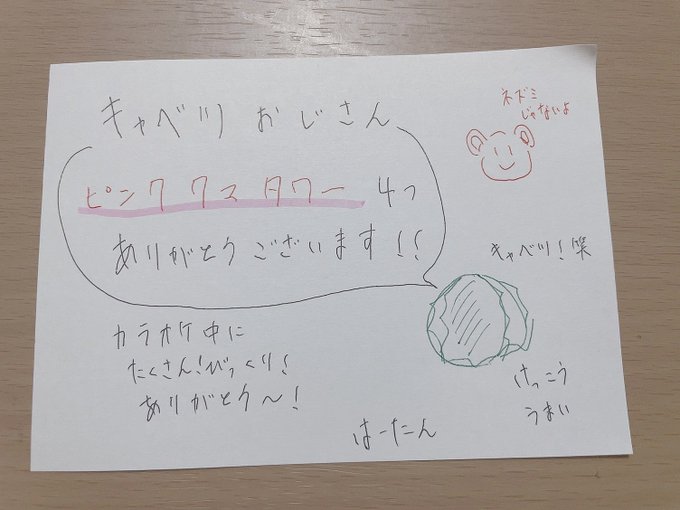 キャベツおじさん
ピンククスタワー 4つ
ありがとうございます!!
カラオケ中に
たくさん!びっくり!
ありがとう〜!
はーたん
ネズミ
じゃないよ
キャベツ!笑
けっこう
うまい